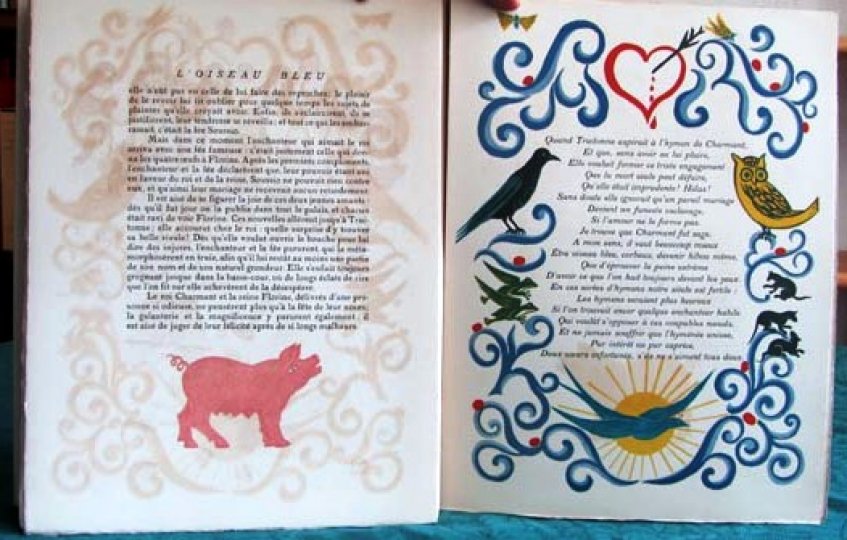 L'OISEAU BLEU
elle n'eut pas eu celle de lui faire des reproches; le plaisir
de le revoir lui fit oublier pour quelque temps les sujets de
plaintes qu'elle croyait avoir. Enfin, ils s'éclaircirent, ils se
justifièrent, leur tendresse se réveilla; et tout ce qui les embar-
rassait, c'était la fée Soussio.
Mais dans ce moment l'enchanteur qui aimait le roi
arriva avec une fée fameuse : c'était justement celle qui don-
na les quatre œufs à Florine. Après les premiers compliments,
l'enchanteur et la fée déclarèrent que, leur pouvoir étant uni
en faveur du roi et de la reine, Soussio ne pouvait rien contre
eux, et qu'ainsi leur mariage ne recevrait aucun retardement.
Il est aisé de se figurer la joie de ces deux jeunes amants :
dès qu'il fit jour on la publia dans tout le palais, et chacun
était ravi de voir Florine. Ces nouvelles allèrent jusqu'à Tru-
tonne; elle accourut chez le roi : quelle surprise d'y trouver
sa belle rivale! Dès qu'elle voulut ouvrir la bouche pour lui
dire des injures, l'enchanteur et la fée parurent, qui la méta-
morphosèrent en truie, afin qu'il lui restât au moins une partie
de son nom et de son naturel grondeur. Elle s'enfuit toujours
grognant jusque dans la basse-cour, où de longs éclats de rire
que l'on fit sur elle achevèrent de la désespérer.
Le roi Charmant et la reine Florine, délivrés d'une per-
sonne si odieuse, ne pensèrent plus qu'à la fête de leur noces;
la galanterie et la magnificence y parurent également : il
est aisé de juger de leur félicité après de si longs malheurs.
Quand Trutonne aspirait à l'hymen de Charmant,
Et que, sans avoir su lui plaire,
Elle voulait former ce triste engagement
Que la mort seule peut défaire,
Qu'elle était imprudente! Hélas!
Sans doute elle ignorait qu'un pareil mariage
Devient un funeste esclavage,
Si l'amour ne le forme pas.
Je trouve que Charmant fut sage.
A mon sens, il vaut beaucoup mieux
Etre oiseau bleu, corbeau, devenir hibou même,
Que d'éprouver la peine extrême
D'avoir ce que l'on hait toujours devant les yeux.
En ces sortes d'hymens notre siècle est fertile :
Les hymens seraient plus heureux
Si l'on trouvait encor quelque enchanteur habile
Qui voulût s'opposer à ces coupables nœuds,
Et ne jamais souffrir que l'hyménée unisse,
Par intérêt ou par caprice,
Deux cœurs infortunés, s'ils ne s'aiment tous deux.